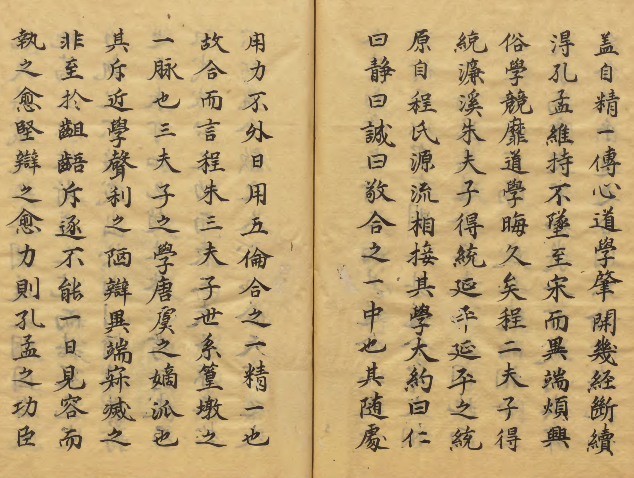 盖自精一傳心道學肇開幾經斷續
淂孔孟維持不墜至宋而異端煩興
俗學競靡道學晦久矣程二夫子得
統濂溪朱夫子得統延平延平之統
原自程氏源流相接其學大約曰仁
曰静曰誠曰敬合之一中也其随處
用力不外日用五倫合之一精一也
故合而言程朱三夫子世系篁墩之
一脉也三夫子之學唐虞之嫡派也
其斥近學聲利之陋辯異端寂滅之
非至於齟齬斥逐不能一日見容而
執之愈堅辯之愈力則孔孟之功臣